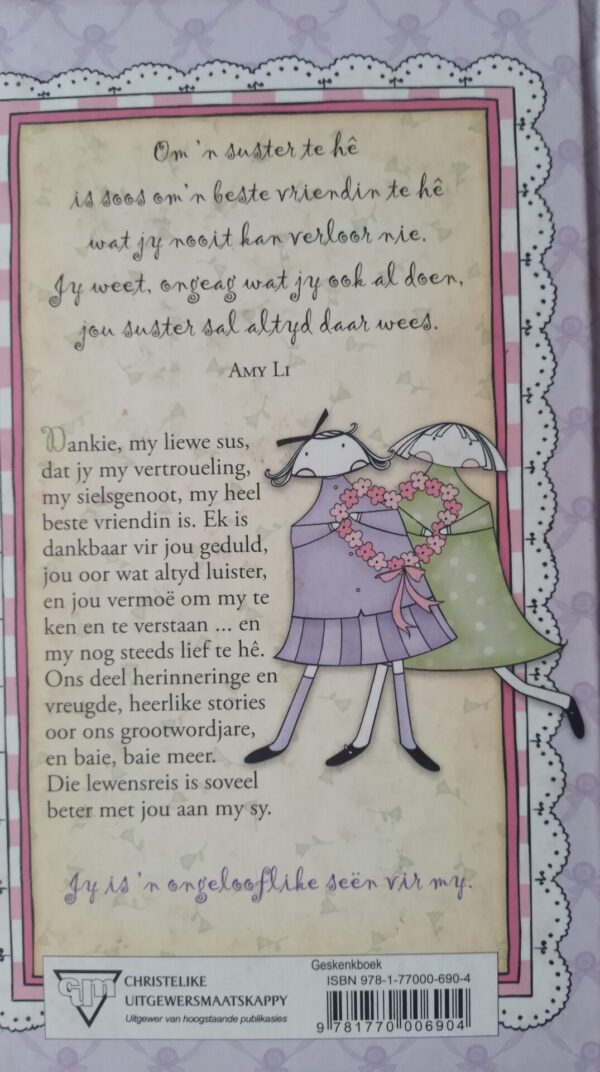 Om 'n suster te hê
is soos om 'n beste vriendin te hê
wat jy nooit kan verloor nie.
Jy weet, ongeag wat jy ook al doen,
jou suster sal altyd daar wees.
AMY LI
Dankie, my liewe sus,
dat jy my vertroueling,
my sielsgenoot, my heel
beste vriendin is. Ek is
dankbaar vir jou geduld,
jou oor wat altyd luister,
en jou vermoë om my te
ken en te verstaan ... en
my nog steeds lief te hê.
Ons deel herinneringe en
vreugde, heerlike stories
oor ons grootwordjare,
en baie, baie meer.
Die lewensreis is soveel
beter met jou aan my sy.
Jy is 'n ongelooflike seën vir my.
CUM
CHRISTELIKE
UITGEWERSMAATSKAPPY
Uitgewer van hoogstaande publikasies
Geskenkboek
ISBN 978-1-77000-690-4
9 781770 006904